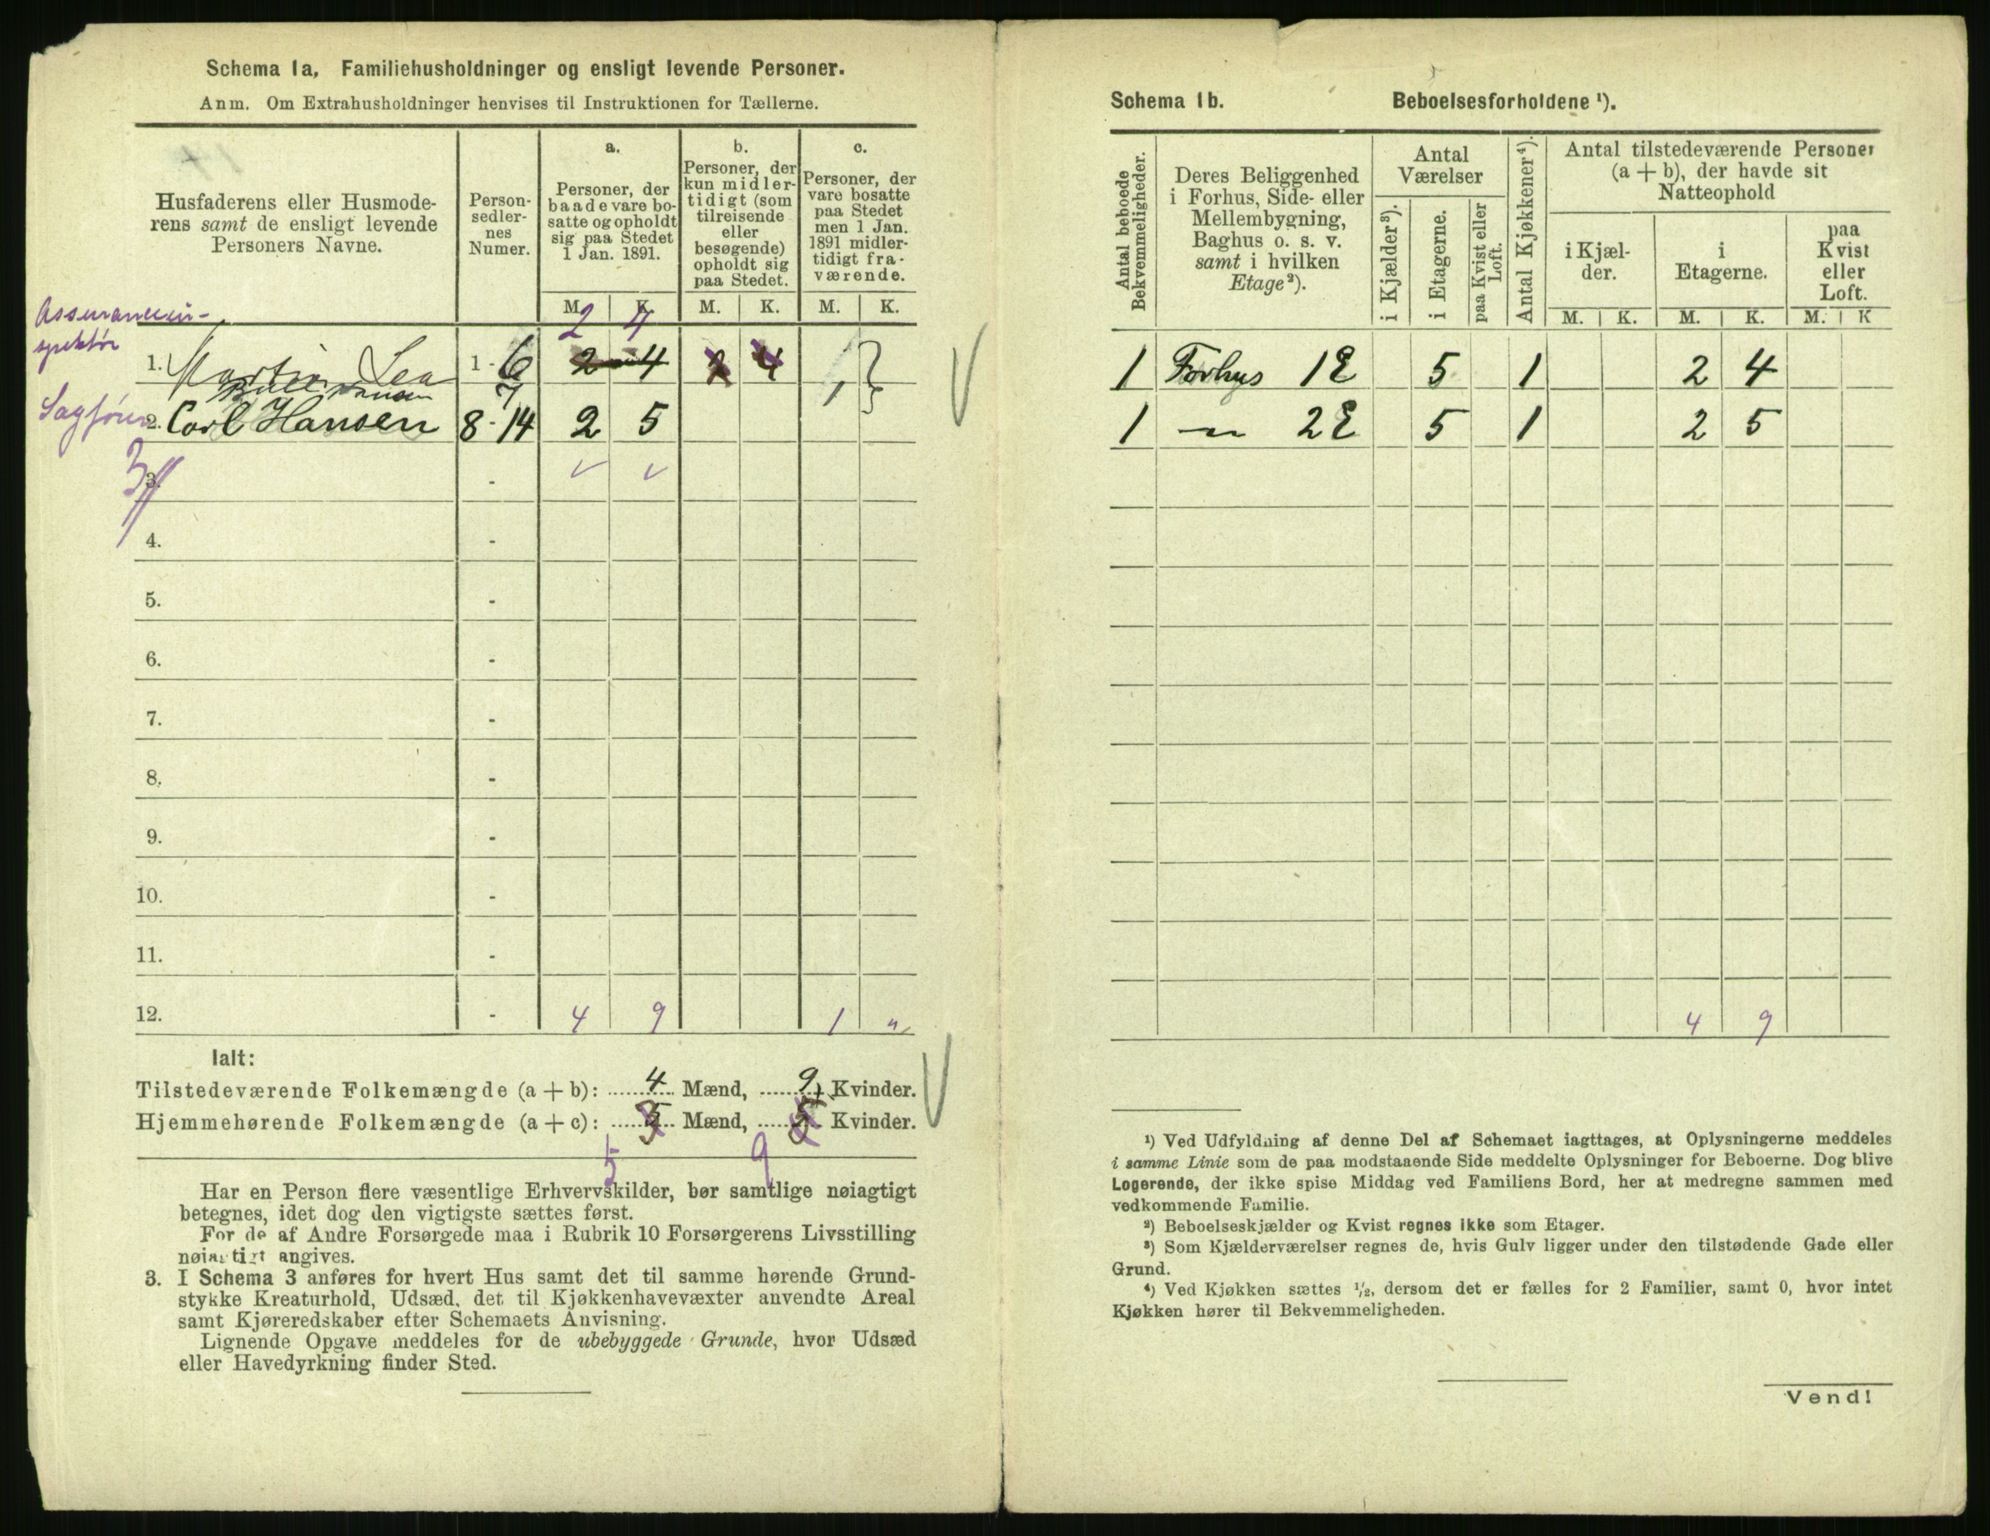 Schema 1a, Familiehusholdninger og ensligt levende Personer.
Anm. Om Extrahusholdninger henvises til Instruktionen for Tællerne.
Husfaderens eller Husmode-
rens samt de ensligt levende
Personers Navne.
Person-
sedler-
nes
Numer.
a.
Personer, der
baade vare bo-
satte og opholdt
sig paa Stedet
1 Jan. 1891.
b.
Personer, der
kun midler-
tidigt (som
tilreisende
eller
besøgende)
opholdt sig
paa Stedet.
c.
Personer, der
vare bosatte
paa Stedet
men 1 Jan.
1891 midler-
tidigt fra-
værende.
M. K. M. K. M. K.
2 4
Assurancein-
spektør
1. Martin Lea 1 - 6 2 4 2 4
7 1
Sagfører
2. Carl Hansen 8 - 14 2 5
3. -
4. -
5. -
6. -
7. -
8. -
9. -
10. -
11. -
12. - 4 9 1 "
Ialt:
Tilstedeværende Folkemængde (a + b): 4 Mænd, 9 Kvinder.
Hjemmehørende Folkemængde (a + c): 5 Mænd, 5 Kvinder.
5 9
Har en Person flere væsentlige Erhvervskilder, bør samtlige nøiagtigt
betegnes, idet dog den vigtigste sættes først.
For de af Andre Forsørgede maa i Rubrik 10 Forsørgerens Livsstilling
nøiagtigt angives.
3. I Schema 3 anføres for hvert Hus samt det til samme hørende Grund-
stykke Kreaturhold, Udsæd, det til Kjøkkenhavevæxter anvendte Areal
samt Kjøreredskaber efter Schemaets Anvisning.
Lignende Opgave meddeles for de ubebyggede Grunde, hvor Udsæd
eller Havedyrkning finder Sted.
Schema 1b. Beboelsesforholdene ¹).
Antal beboede
Bekvemmeligheder.
Deres Beliggenhed
i Forhus, Side- eller
Mellembygning,
Baghus o. s. v.
samt i hvilken
Etage²).
Antal
Værelser
i Kjælder³).
i Etagerne.
paa Kvist eller
Loft.
Antal Kjøkkener⁴).
Antal tilstedeværende Personer
(a + b), der havde sit
Natteophold
i Kjæl-
der.
i
Etagerne.
paa
Kvist
eller
Loft.
M. K. M. K. M. K
1 Forhus 1 E 5 1 2 4
1 — " — 2 E 5 1 2 5
4 9
¹) Ved Udfyldning af denne Del af Schemaet iagttages, at Oplysningerne meddeles
i samme Linie som de paa modstaaende Side meddelte Oplysninger for Beboerne. Dog blive
Logerende, der ikke spise Middag ved Familiens Bord, her at medregne sammen med
vedkommende Familie.
²) Beboelseskjælder og Kvist regnes ikke som Etager.
³) Som Kjælderværelser regnes de, hvis Gulv ligger under den tilstødende Gade eller
Grund.
⁴) Ved Kjøkken sættes ½, dersom det er fælles for 2 Familier, samt 0, hvor intet
Kjøkken hører til Bekvemmeligheden.
Vend!